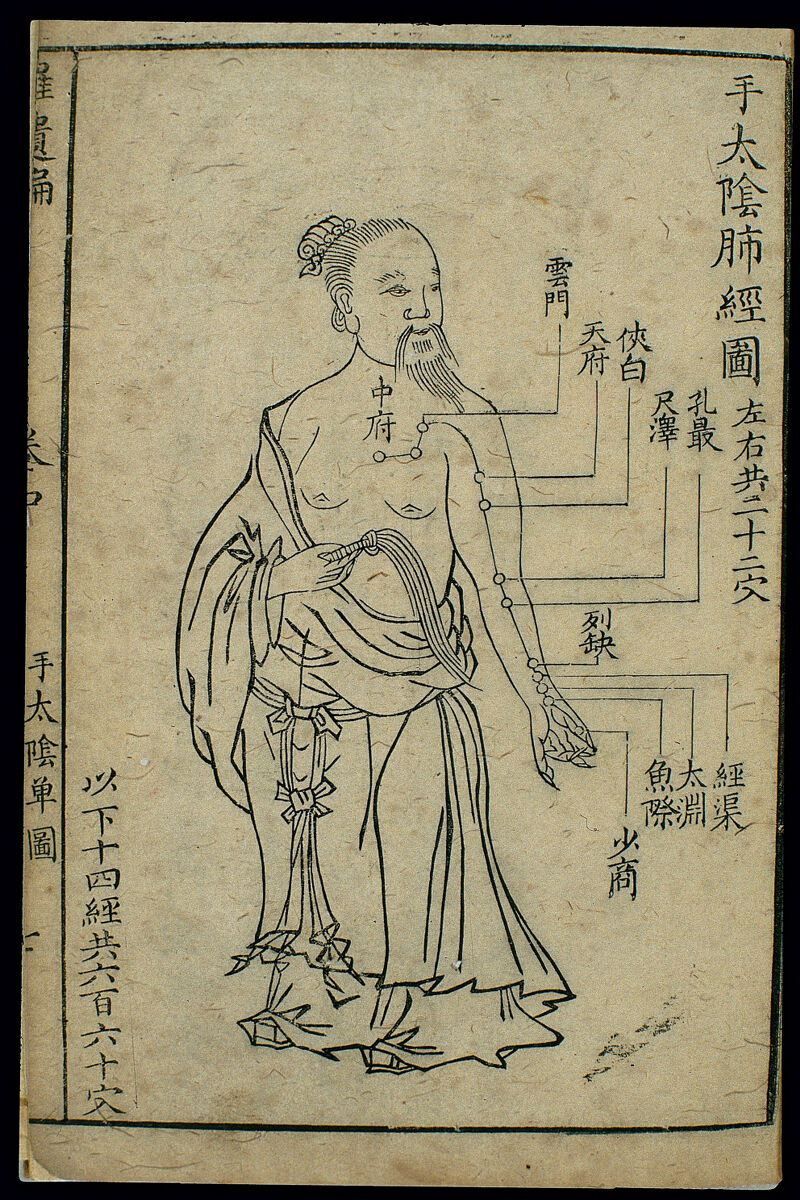 手太陰肺經圖
左右共二十二穴
孔最
尺澤
俠白
天府
雲門
中府
列缺
經渠
太淵
魚際
少商
以下十四經共六百六十穴
遺編
手太陰單圖